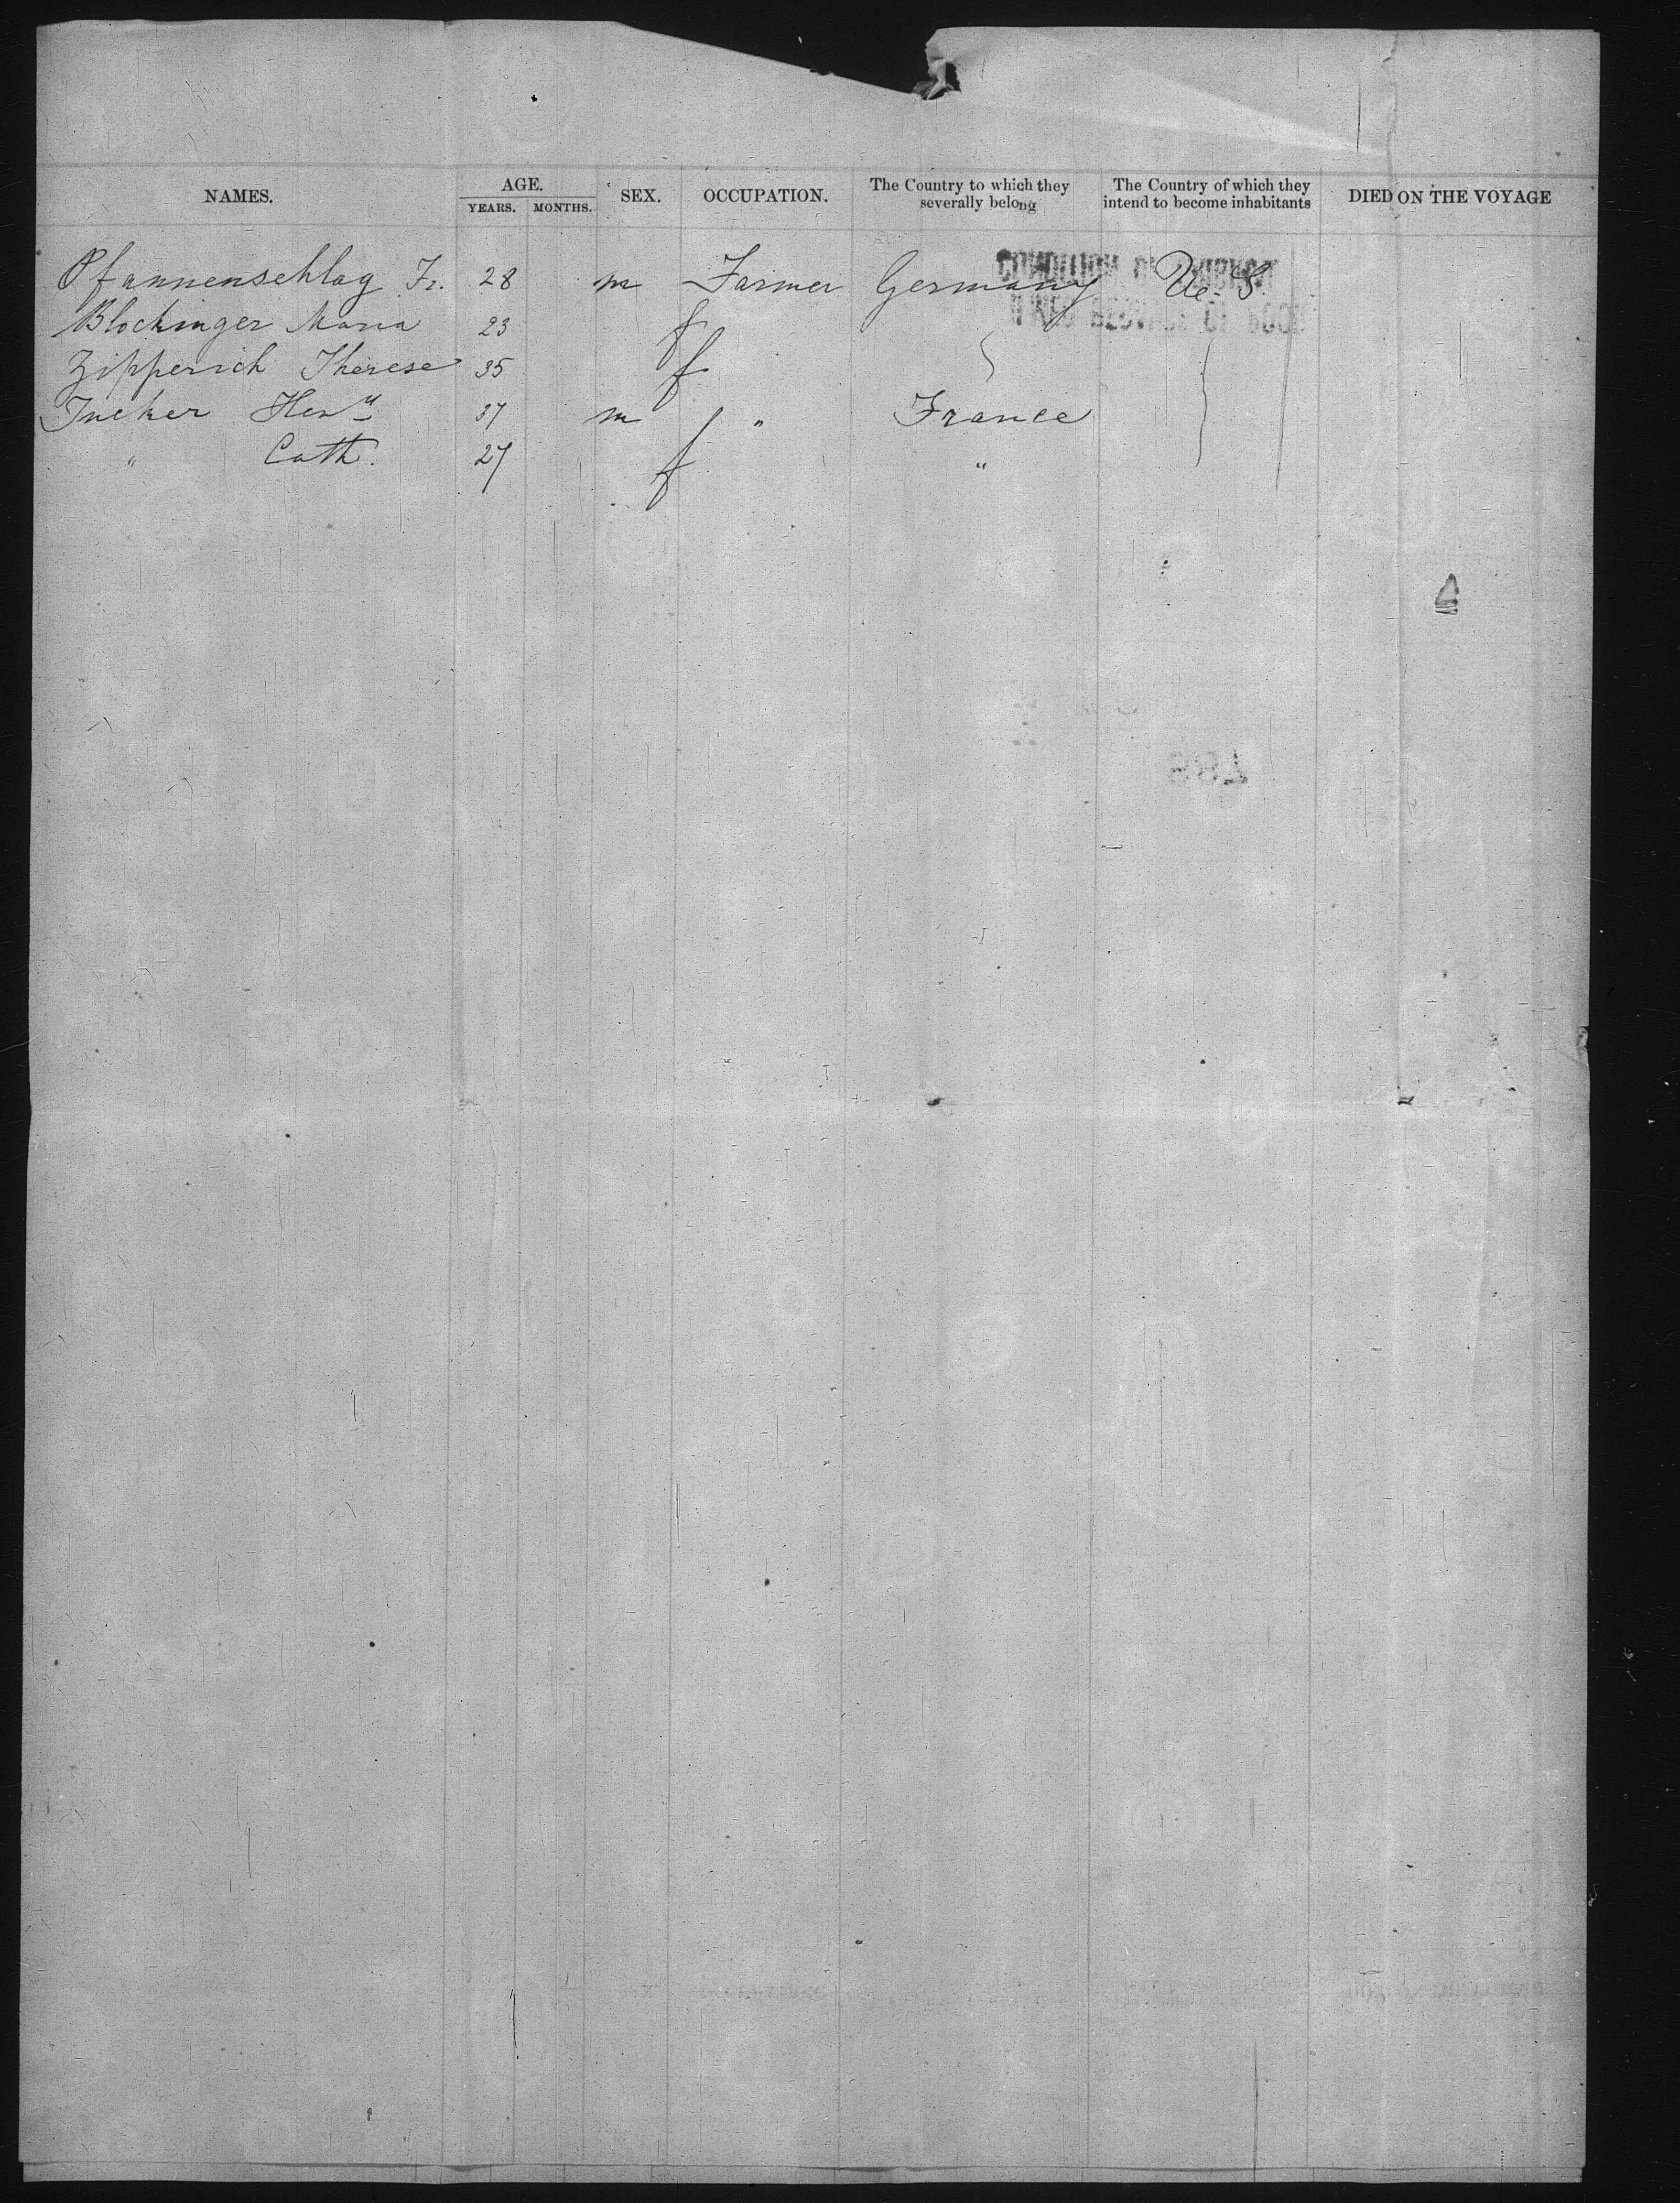 NAMES. AGE. YEARS. MONTHS. SEX. OCCUPATION. The Country to which they severally belong The Country of which they intend to become inhabitants DIED ON THE VOYAGE
Pfannenschlag Fr. 28 m Farmer Germany U. S.
Blochinger Maria 23 f
Zipperich Therese 35 f
Hen 37 m " France
" Cath. 27 f "